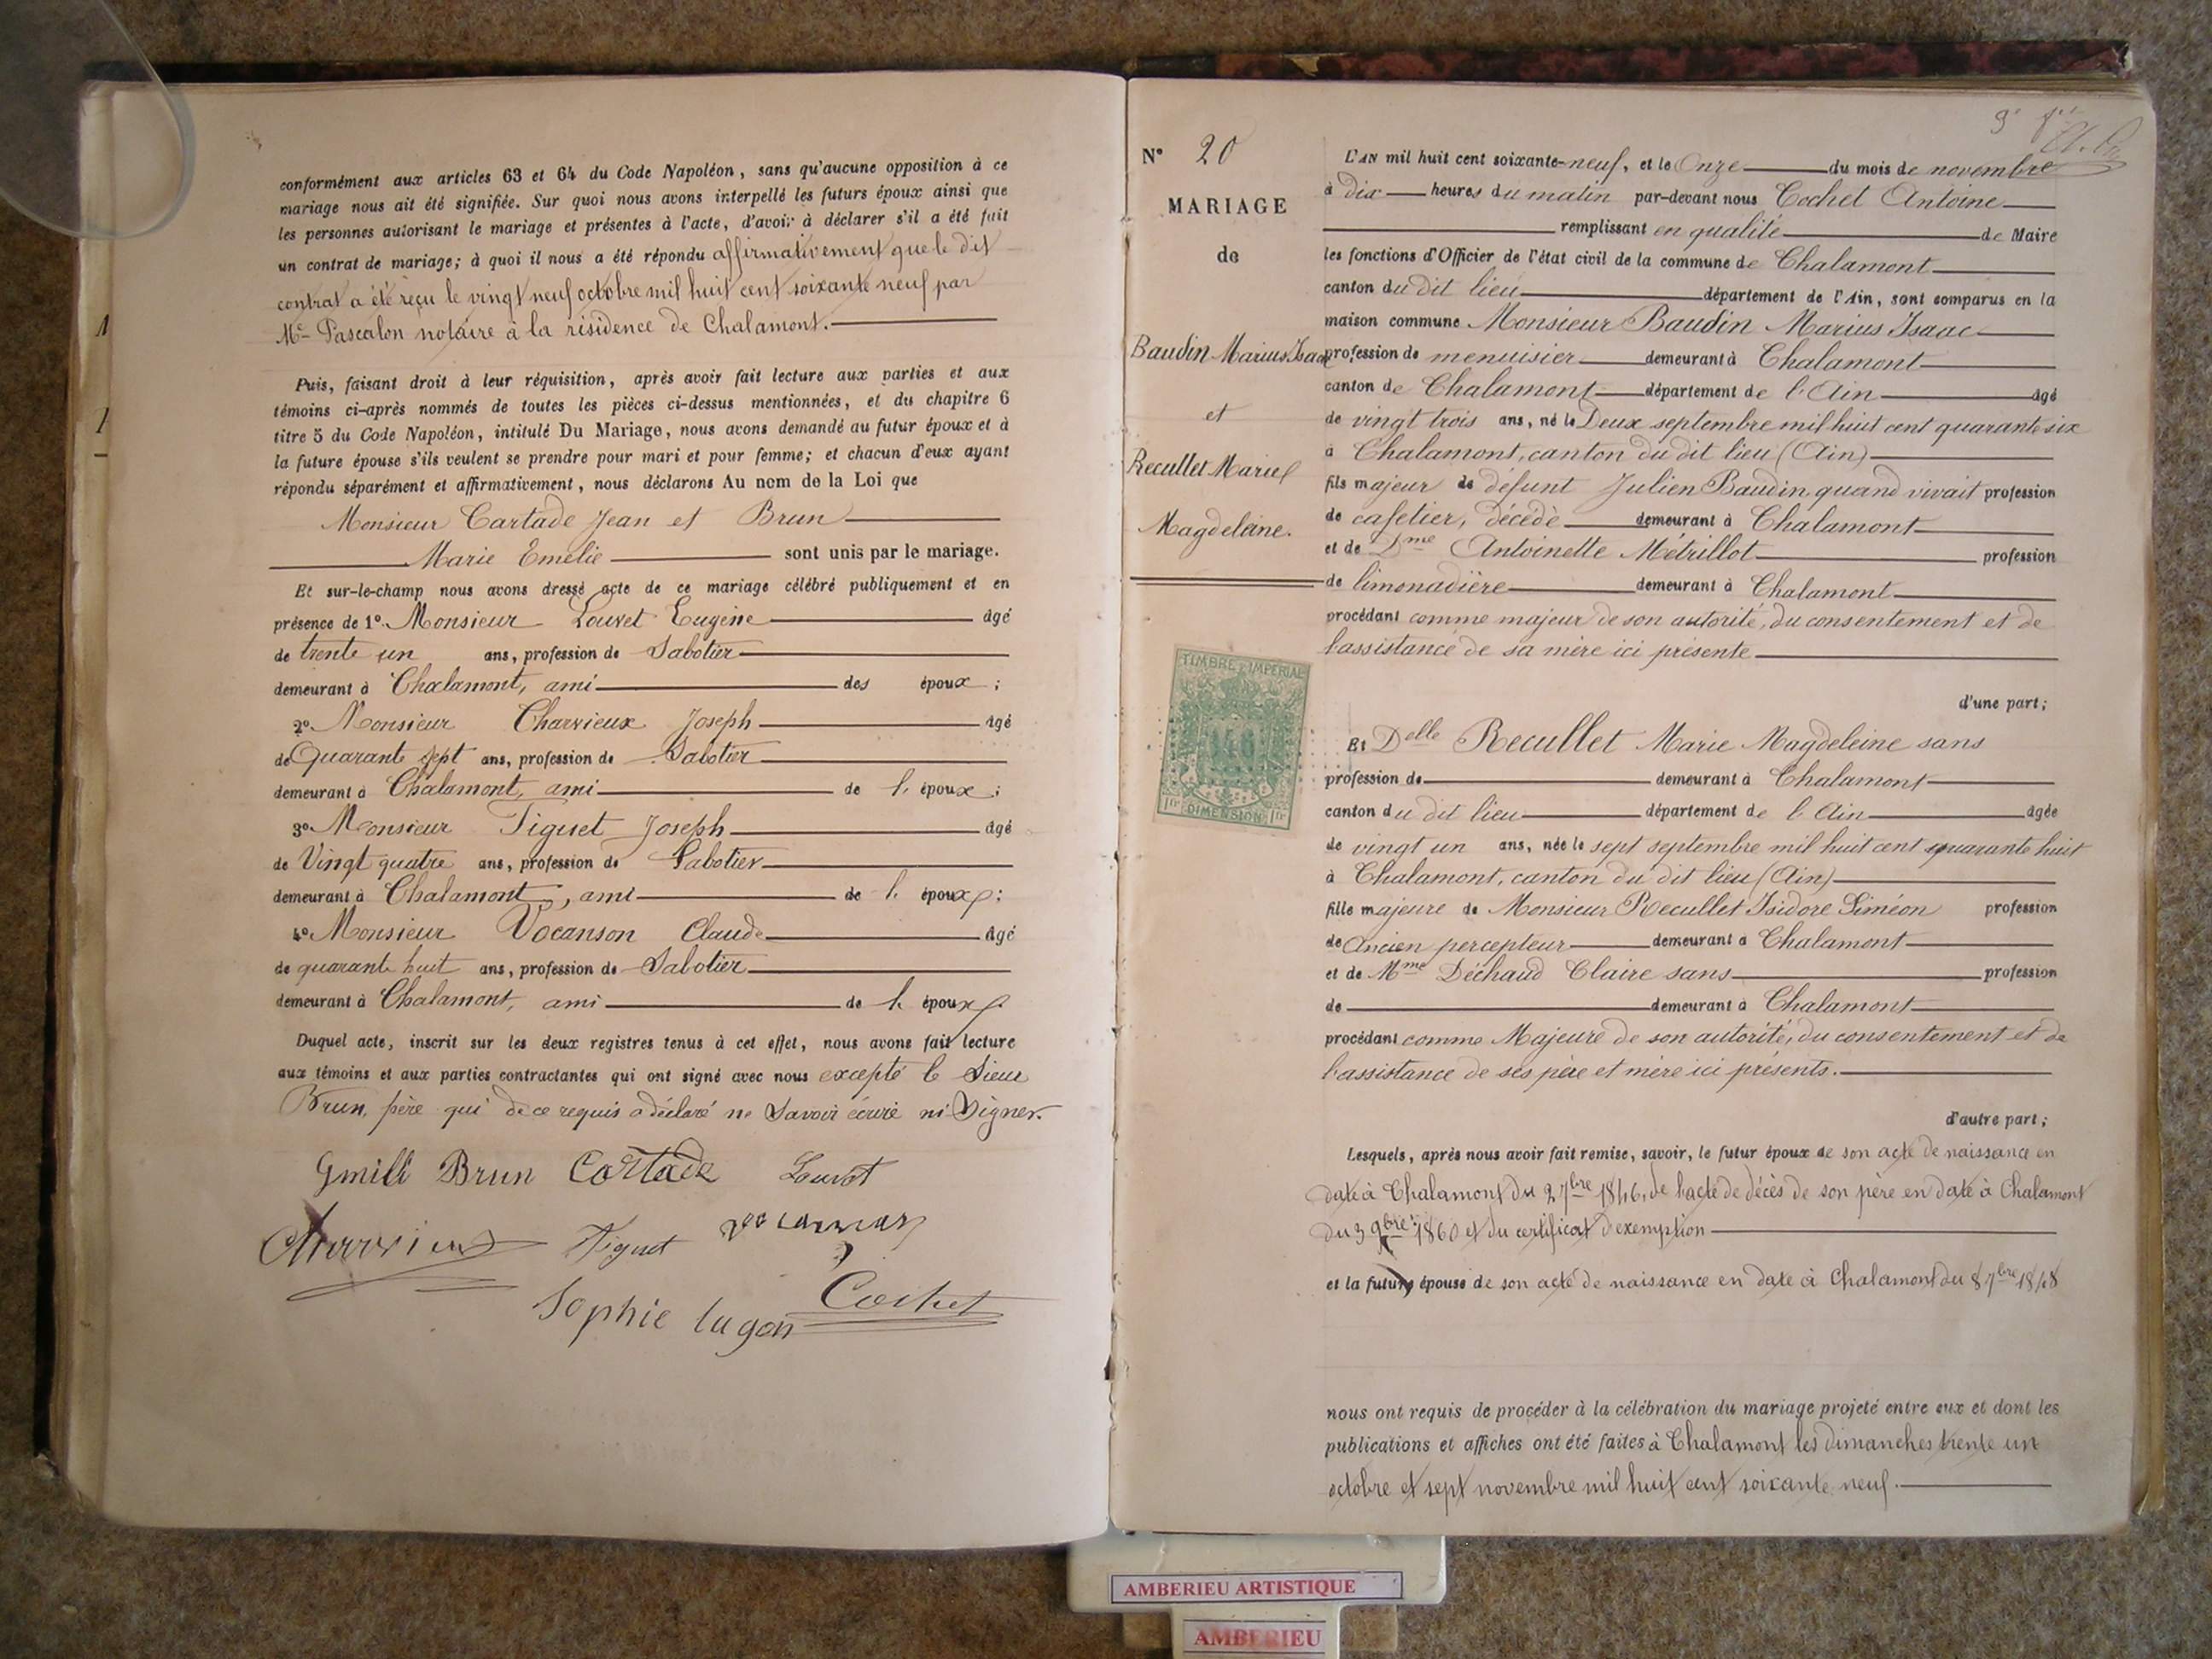 conformément aux articles 63 et 64 du Code Napoléon, sans qu'aucune opposition à ce
mariage nous ait été signifiée. Sur quoi nous avons interpellé les futurs époux ainsi que
les personnes autorisant le mariage et présentes à l'acte, d'avoir à déclarer s'il a été fait
un contrat de mariage; à quoi il nous a été répondu affirmativement que le dit
contrat a été reçu le vingt neuf octobre mil huit cent soixante neuf par
Me Pascalon notaire à la résidence de Chalamont.
Puis, faisant droit à leur réquisition, après avoir fait lecture aux parties et aux
témoins ci-après nommés de toutes les pièces ci-dessus mentionnées, et du chapitre 6
titre 5 du Code Napoléon, intitulé Du Mariage, nous avons demandé au futur époux et à
la future épouse s'ils veulent se prendre pour mari et pour femme; et chacun d'eux ayant
répondu séparément et affirmativement, nous déclarons Au nom de la Loi que
Monsieur Cartade Jean et Brun
Marie Emelie sont unis par le mariage.
Et sur-le-champ nous avons dressé acte de ce mariage célébré publiquement et en
présence de 1o Monsieur Louvet Eugène âgé
de trente un ans, profession de Sabotier
demeurant à Chalamont, ami des époux ;
2o Monsieur Charvieux Joseph âgé
de Quarante sept ans, profession de Sabotier
demeurant à Chalamont, ami de l. époux ;
3o Monsieur Tiguet Joseph âgé
de Vingt quatre ans, profession de Sabotier
demeurant à Chalamont, ami de l. époux ;
4o Monsieur Vocanson Claude âgé
de quarante huit ans, profession de Sabotier
demeurant à Chalamont, ami de l. époux
Duquel acte, inscrit sur les deux registres tenus à cet effet, nous avons fait lecture
aux témoins et aux parties contractantes qui ont signé avec nous excepté le Sieur
Brun, père qui de ce requis a déclaré ne Savoir écrire ni Signer.
Emili Brun Cartade Louvet
Charvieux Tiguet
Sophie lugon Cochet
No 20
MARIAGE
de
Baudin Marius Isaac
et
Recullet Marie
Magdeleine.
TIMBRE IMPÉRIAL
1 fr DIMENSION 1 fr
L'AN mil huit cent soixante-neuf, et le Onze du mois de novembre
à dix heures du matin par-devant nous Cochet Antoine
remplissant en qualité de Maire
les fonctions d'Officier de l'état civil de la commune de Chalamont
canton du dit lieu département de l'Ain, sont comparus en la
maison commune Monsieur Baudin Marius Isaac
profession de menuisier demeurant à Chalamont
canton de Chalamont département de l'Ain âgé
de vingt trois ans, né le Deux septembre mil huit cent quarante six
à Chalamont, canton du dit lieu (Ain)
fils majeur de défunt Julien Baudin quand vivait profession
de cafetier, décédé demeurant à Chalamont
et de Dme Antoinette Métrillot profession
de limonadière demeurant à Chalamont
procédant comme majeur de son autorité, du consentement et de
l'assistance de sa mère ici présente
d'une part;
Et Delle Recullet Marie Magdeleine sans
profession de demeurant à Chalamont
canton du dit lieu département de l'Ain âgée
de vingt un ans, née le sept septembre mil huit cent quarante huit
à Chalamont, canton du dit lieu (Ain)
fille majeure de Monsieur Recullet Isidore Siméon profession
de Ancien percepteur demeurant à Chalamont
et de Mme Déchaud Claire sans profession
de demeurant à Chalamont
procédant comme Majeure de son autorité, du consentement et de
l'assistance de ses père et mère ici présents.
d'autre part;
Lesquels, après nous avoir fait remise, savoir, le futur époux de son acte de naissance en
date à Chalamont du 2 7bre 1846, de l'acte de décès de son père en date à Chalamont
du 3 9bre 1860 et du certificat d'exemption
et la future épouse de son acte de naissance en date à Chalamont du 8 7bre 1848
nous ont requis de procéder à la célébration du mariage projeté entre eux et dont les
publications et affiches ont été faites à Chalamont les dimanches trente un
octobre et sept novembre mil huit cent soixante neuf.
AMBERIEU ARTISTIQUE
AMBERIEU